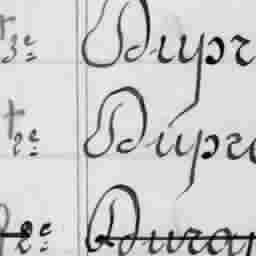 3e Dupr
t 2e Dupr
2e Duran